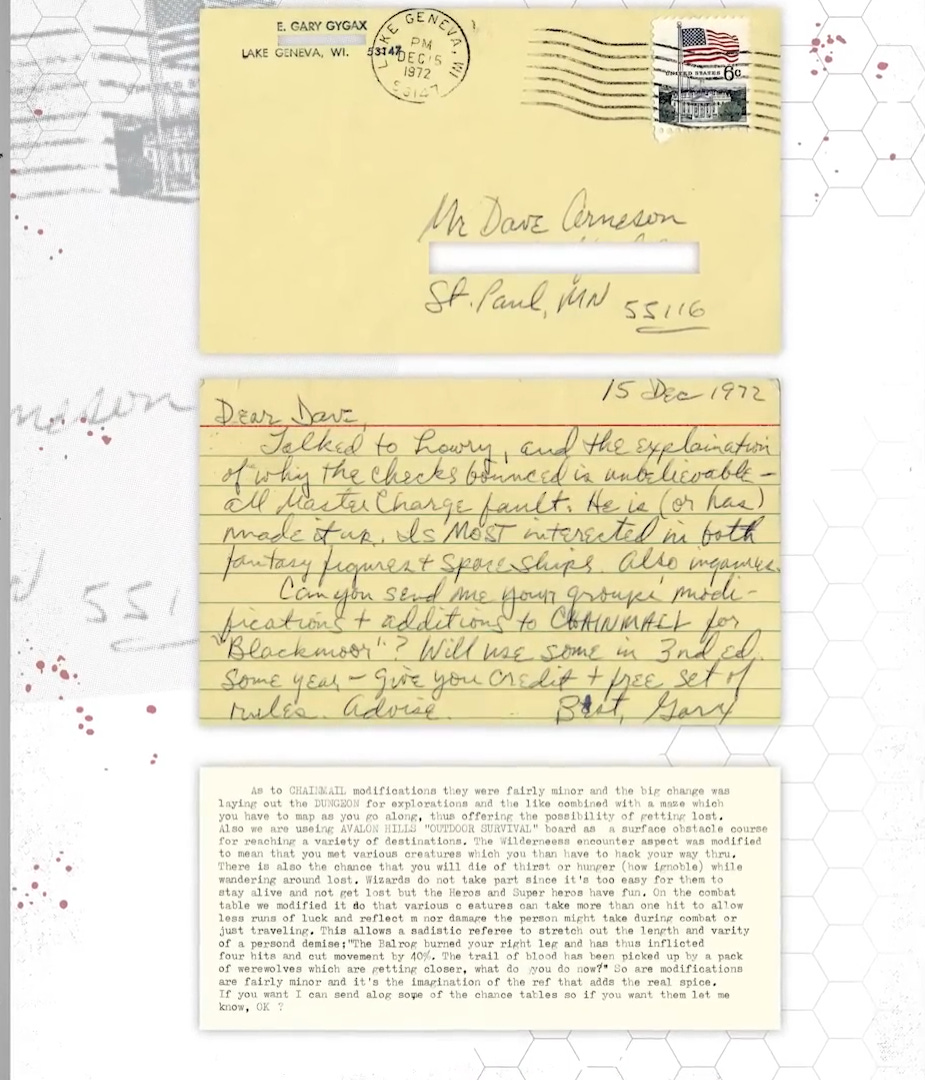 E. GARY GYGAX
LAKE GENEVA, WI. 53147
LAKE GENEVA, WI
PM
DEC 15
1972
53147
UNITED STATES 6c
Mr Dave Arneson
St. Paul, MN 55116
15 Dec 1972
Dear Dave,
Talked to Lowry, and the explaination
of why the checks bounced is unbelievable -
all Master Charge fault. He is (or has)
made it up. Is MOST interested in both
fantasy figures + space ships. Also inquires.
Can you send me your groups modi-
fications + additions to CHAINMAIL for
"Blackmoor"? Will use some in 3nd ed.
some year - give you credit + free set of
rules. Advise. Best, Gary
As to CHAINMAIL modifications they were fairly minor and the big change was
laying out the DUNGEON for explorations and the like combined with a maze which
you have to map as you go along, thus offering the possibility of getting lost.
Also we are useing AVALON HILLS "OUTDOOR SURVIVAL" board as a surface obstacle course
for reaching a variety of destinations. The Wilderneess encounter aspect was modified
to mean that you met various creatures which you than have to hack your way thru.
There is also the chance that you will die of thirst or hunger (how ignoble) while
wandering around lost. Wizards do not take part since it's too easy for them to
stay alive and not get lost but the Heros and Super heros have fun. On the combat
table we modified it do that various c eatures can take more than one hit to allow
less runs of luck and reflect m nor damage the person might take during combat or
just traveling. This allows a sadistic referee to stretch out the length and varity
of a persond demise;"The Balrog burned your right leg and has thus inflicted
four hits and cut movement by 40%. The trail of blood has been picked up by a pack
of werewolves which are getting closer, what do you do now?" So are modifications
are fairly minor and it's the imagination of the ref that adds the real spice.
If you want I can send alog some of the chance tables so if you want them let me
know, OK ?